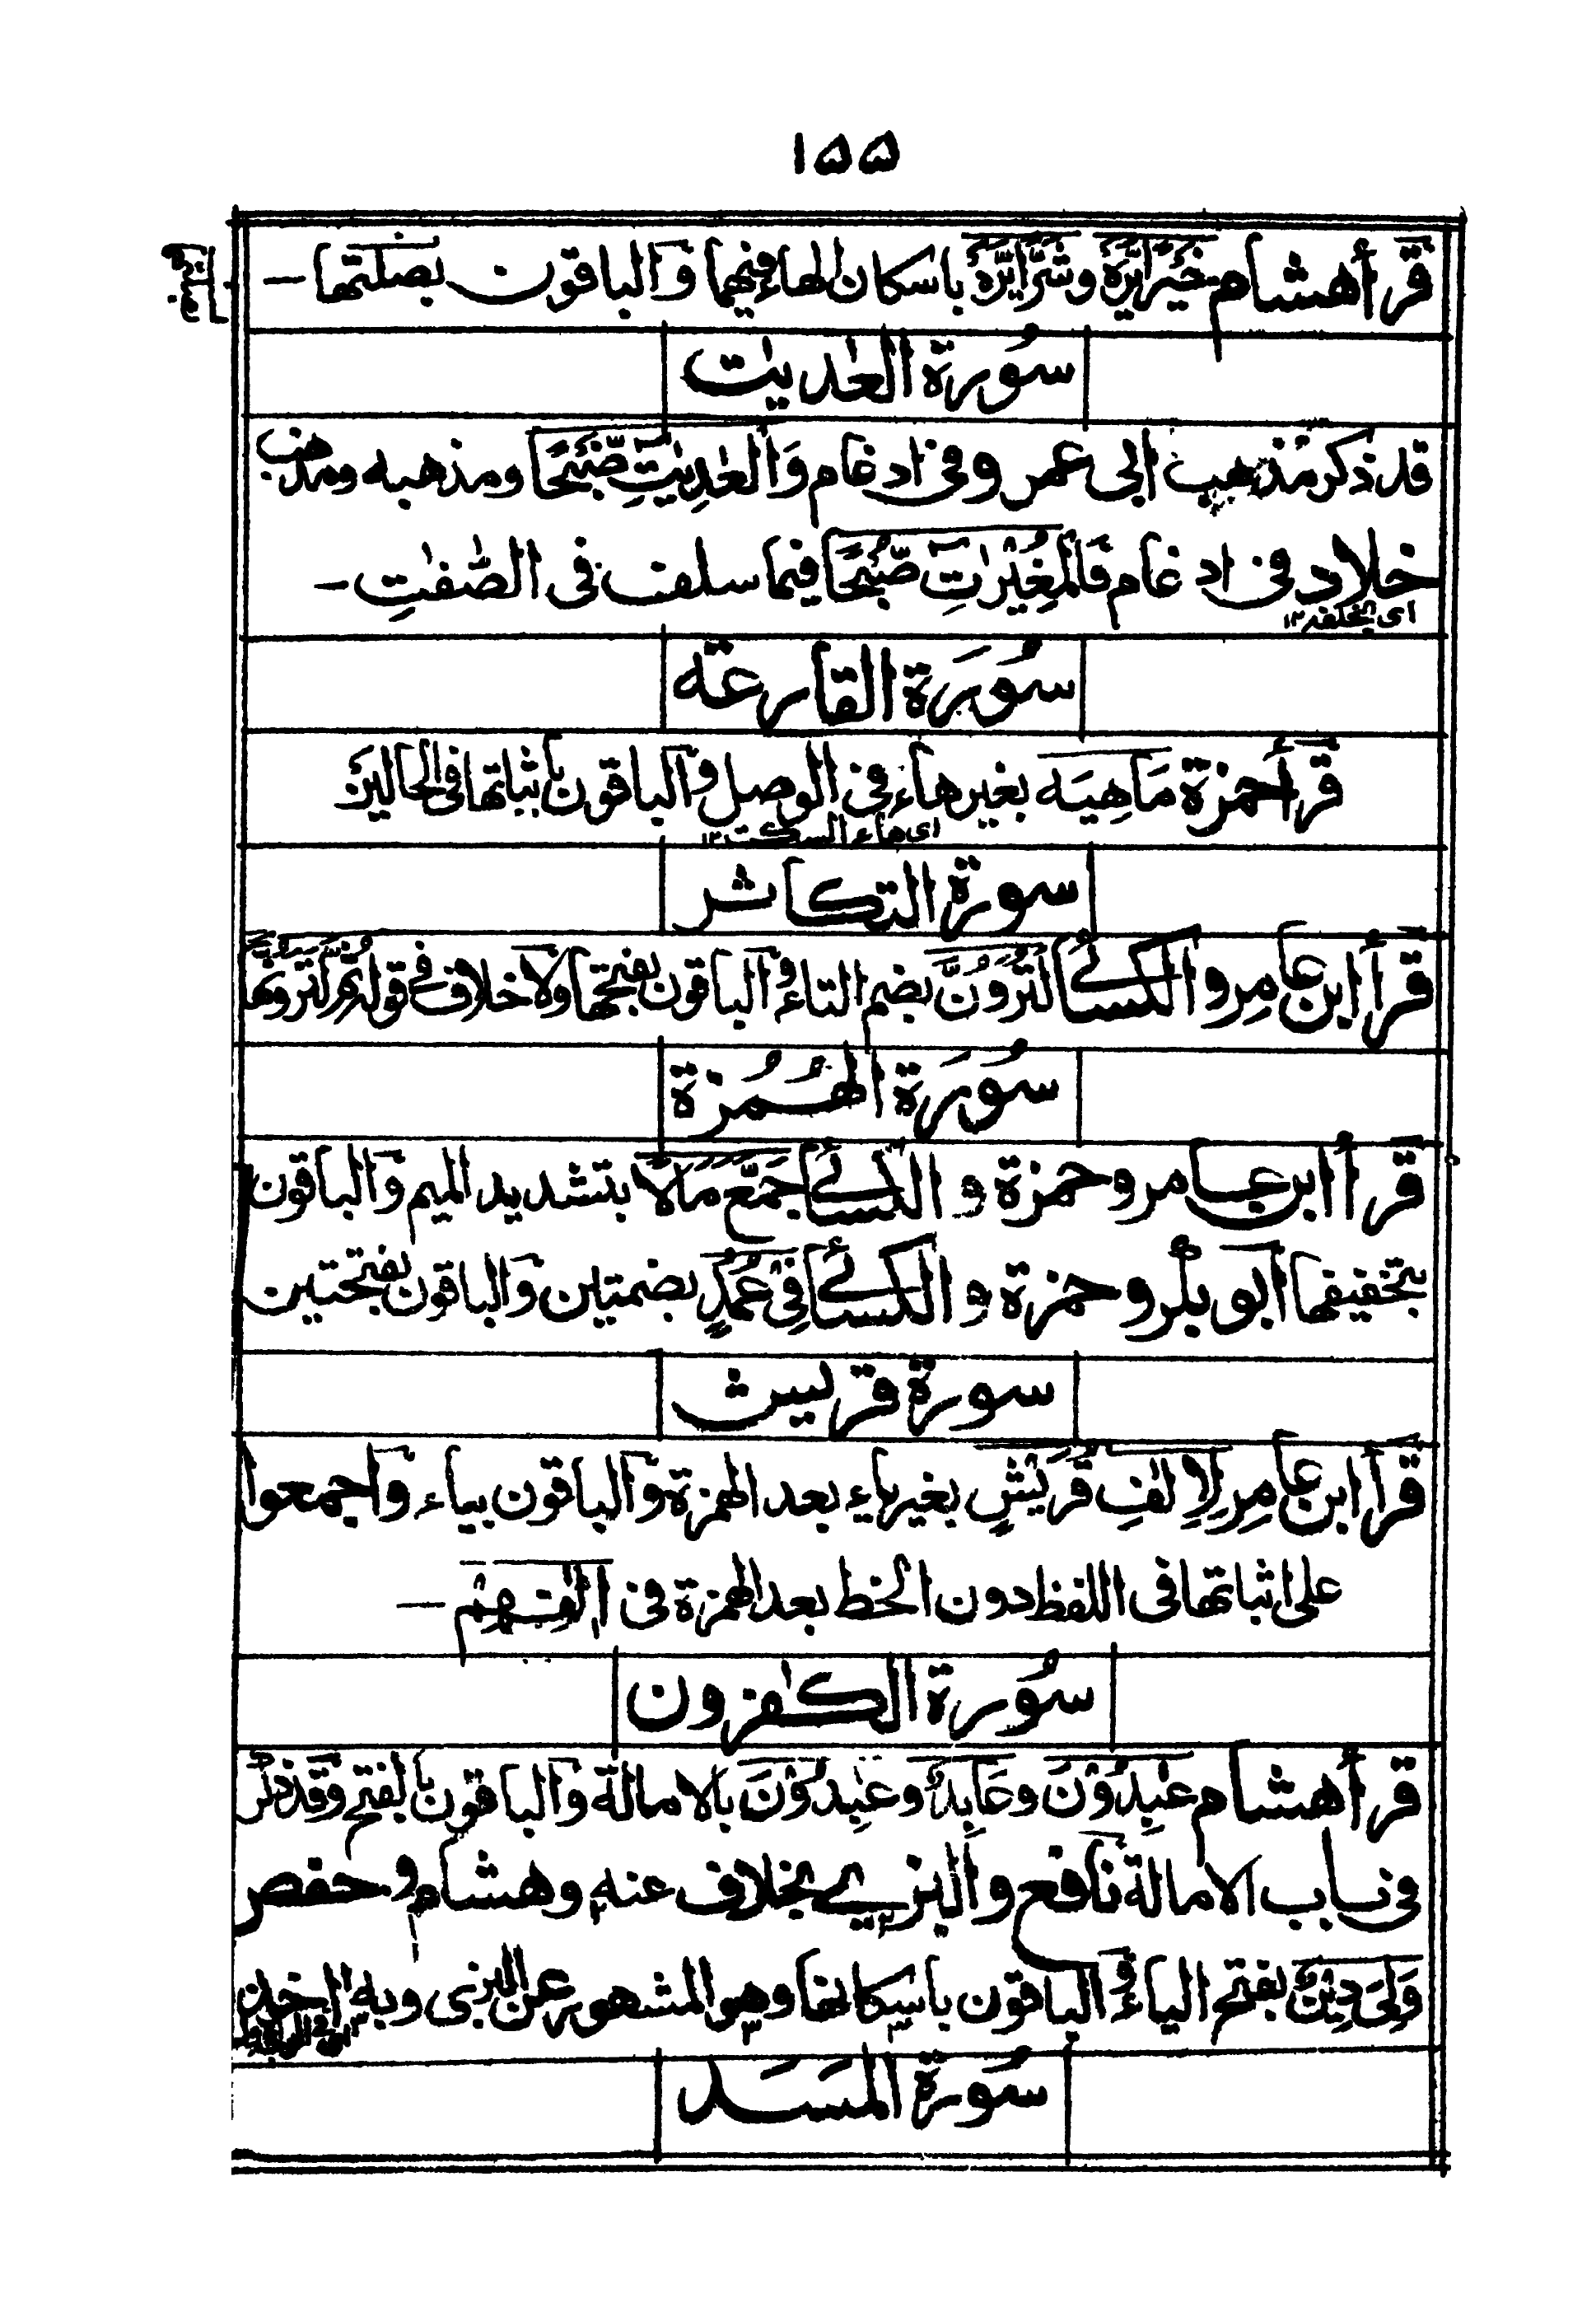 ۱۵۵
قرأ هشام خَيْرًا يَّرَهْ وشَرًّا يَّرَهْ باسكان الهاء فيهما وَالباقون بصلتها —
سُورة العٰديٰت
قد ذكر مذهب ابى عمرو فى ادغام وَالْعٰدِيٰتِ ضَّبْحًا ومذهبه ومذهب
خلاد فى ادغام فَالْمُغِيْرٰتِ صُّبْحًا فيما سلف فى الصّٰفٰتِ —
اى بخلفه ۱۲
سُورَة القارعة
قرأ حمزة مَاهِيَه بغير هاء فى الوصل والباقون باثباتها فى الحالين
اى هاء السكت ۱۲
سورة التكاثر
قرأ ابن عامر والكسائے لَتُرَوُنَّ بضم التاء والباقون بفتحها ولا خلاف فى قوله ثُمَّ لَتَرَوُنَّهَا
سُورَة الهُمُزة
قرأ ابن عامر وحمزة والكسائے جَمَّعَ مَالًا بتشديد الميم وَالباقون
بتخفيفها ابو بكر وحمزة والكسائے فِىْ عُمُدٍ بضمتين وَالباقون بفتحتين
سورة قريش
قرأ ابن عامر لِاِلٰفِ قُرَيْشٍ بغير ياء بعد الهمزة وَالباقون بياء واجمعوا
على اثباتها فى اللفظ دون الخط بعد الهمزة فى اٖلٰفِهِمْ —
سُورة الكٰفرون
قرأ هشام عٰبِدُوْنَ وعَابِدٌ وعٰبِدُوْنَ بالامالة وَالباقون بالفتح وقد ذكر
فى باب الامالة نافع والبزے بخلاف عنه وهشام وحفص
وَلِىَ دِيْنِ بفتح الياء والباقون باسكانها وهو المشهور عن البزى وبه اٰخذ
سُورة المَسَد